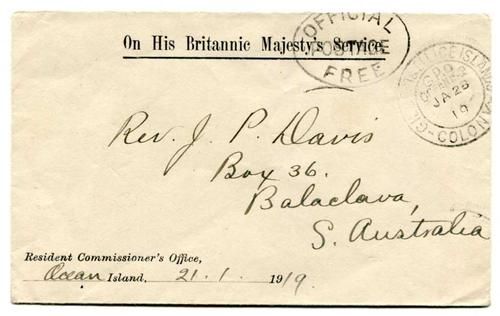 On His Britannic Majesty's Service.
OFFICIAL
POSTAGE
FREE
GPO
JA 26
19
COLONY
Rev. J. P. Davis
Box 36.
Balaclava,
S. Australia
Resident Commissioner's Office,
Ocean Island, 21.1.1919.